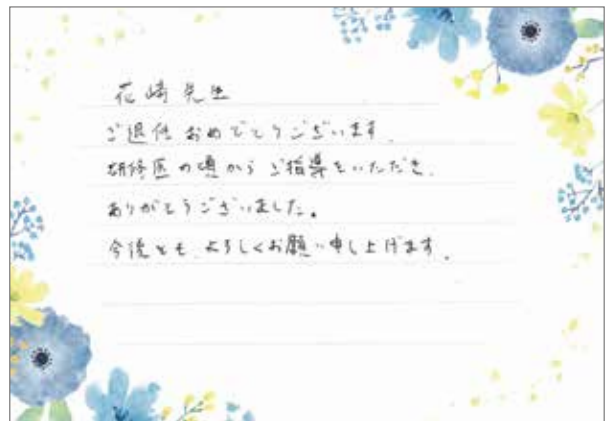 花崎先生
ご退任おめでとうございます.
研修医の頃からご指導をいただき.
ありがとうございました。
今後とも よろしくお願い申し上げます.